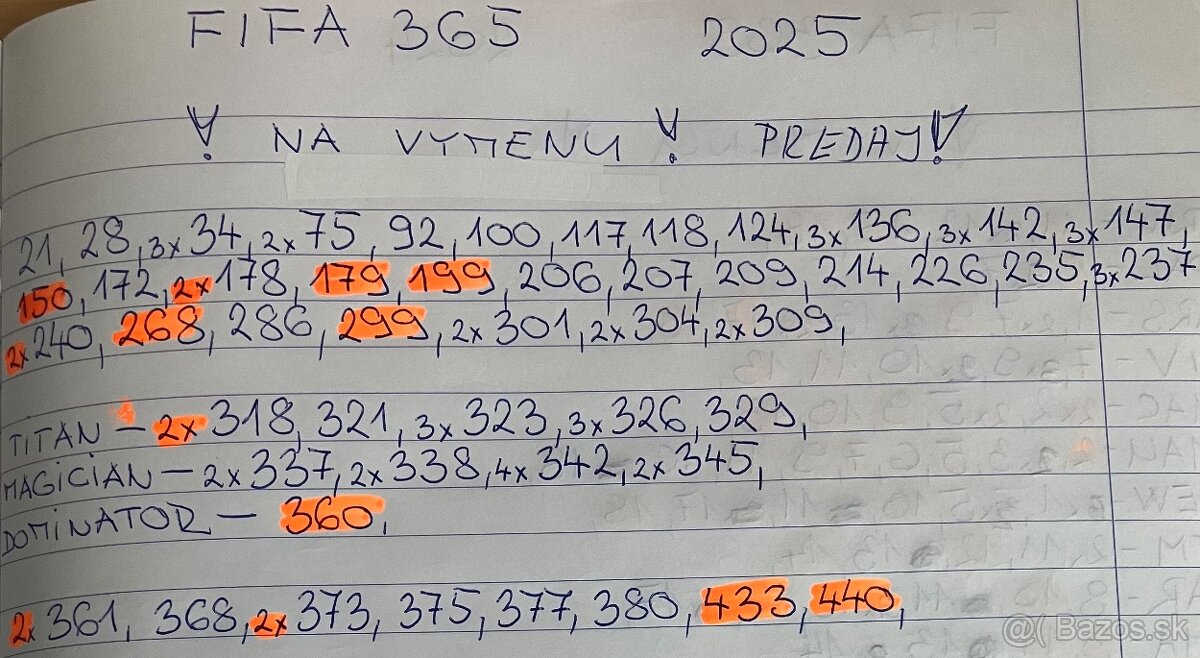 FIFA 365 2025
! NA VYMENU ! PREDAJ!
21, 28, 3x34, 2x75, 92, 100, 117, 118, 124, 3x136, 3x142, 3x147,
150, 172, 2x178, 179, 199, 206, 207, 209, 214, 226, 235, 3x237
2x240, 268, 286, 299, 2x301, 2x304, 2x309,
TITAN – 2x318, 321, 3x323, 3x326, 329,
MAGICIAN – 2x337, 2x338, 4x342, 2x345,
DOMINATOR – 360,
2x361, 368, 2x373, 375, 377, 380, 433, 440,
Bazos.sk